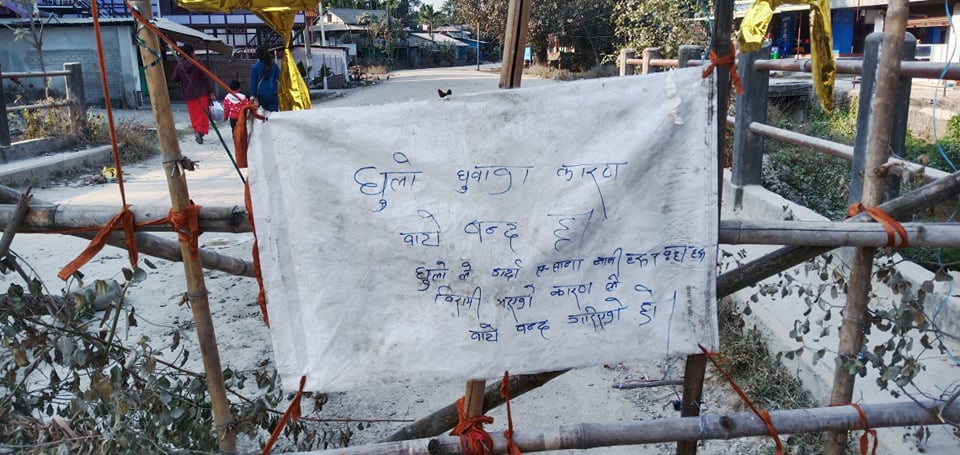 धुलो धुवाका कारण
बाटो बन्द छ।
धुलो ले गर्दा स-साना बानी हरू र बृद्धा हरू
विरामी भएको कारण ले
बाटो बन्द गरिएको हो।